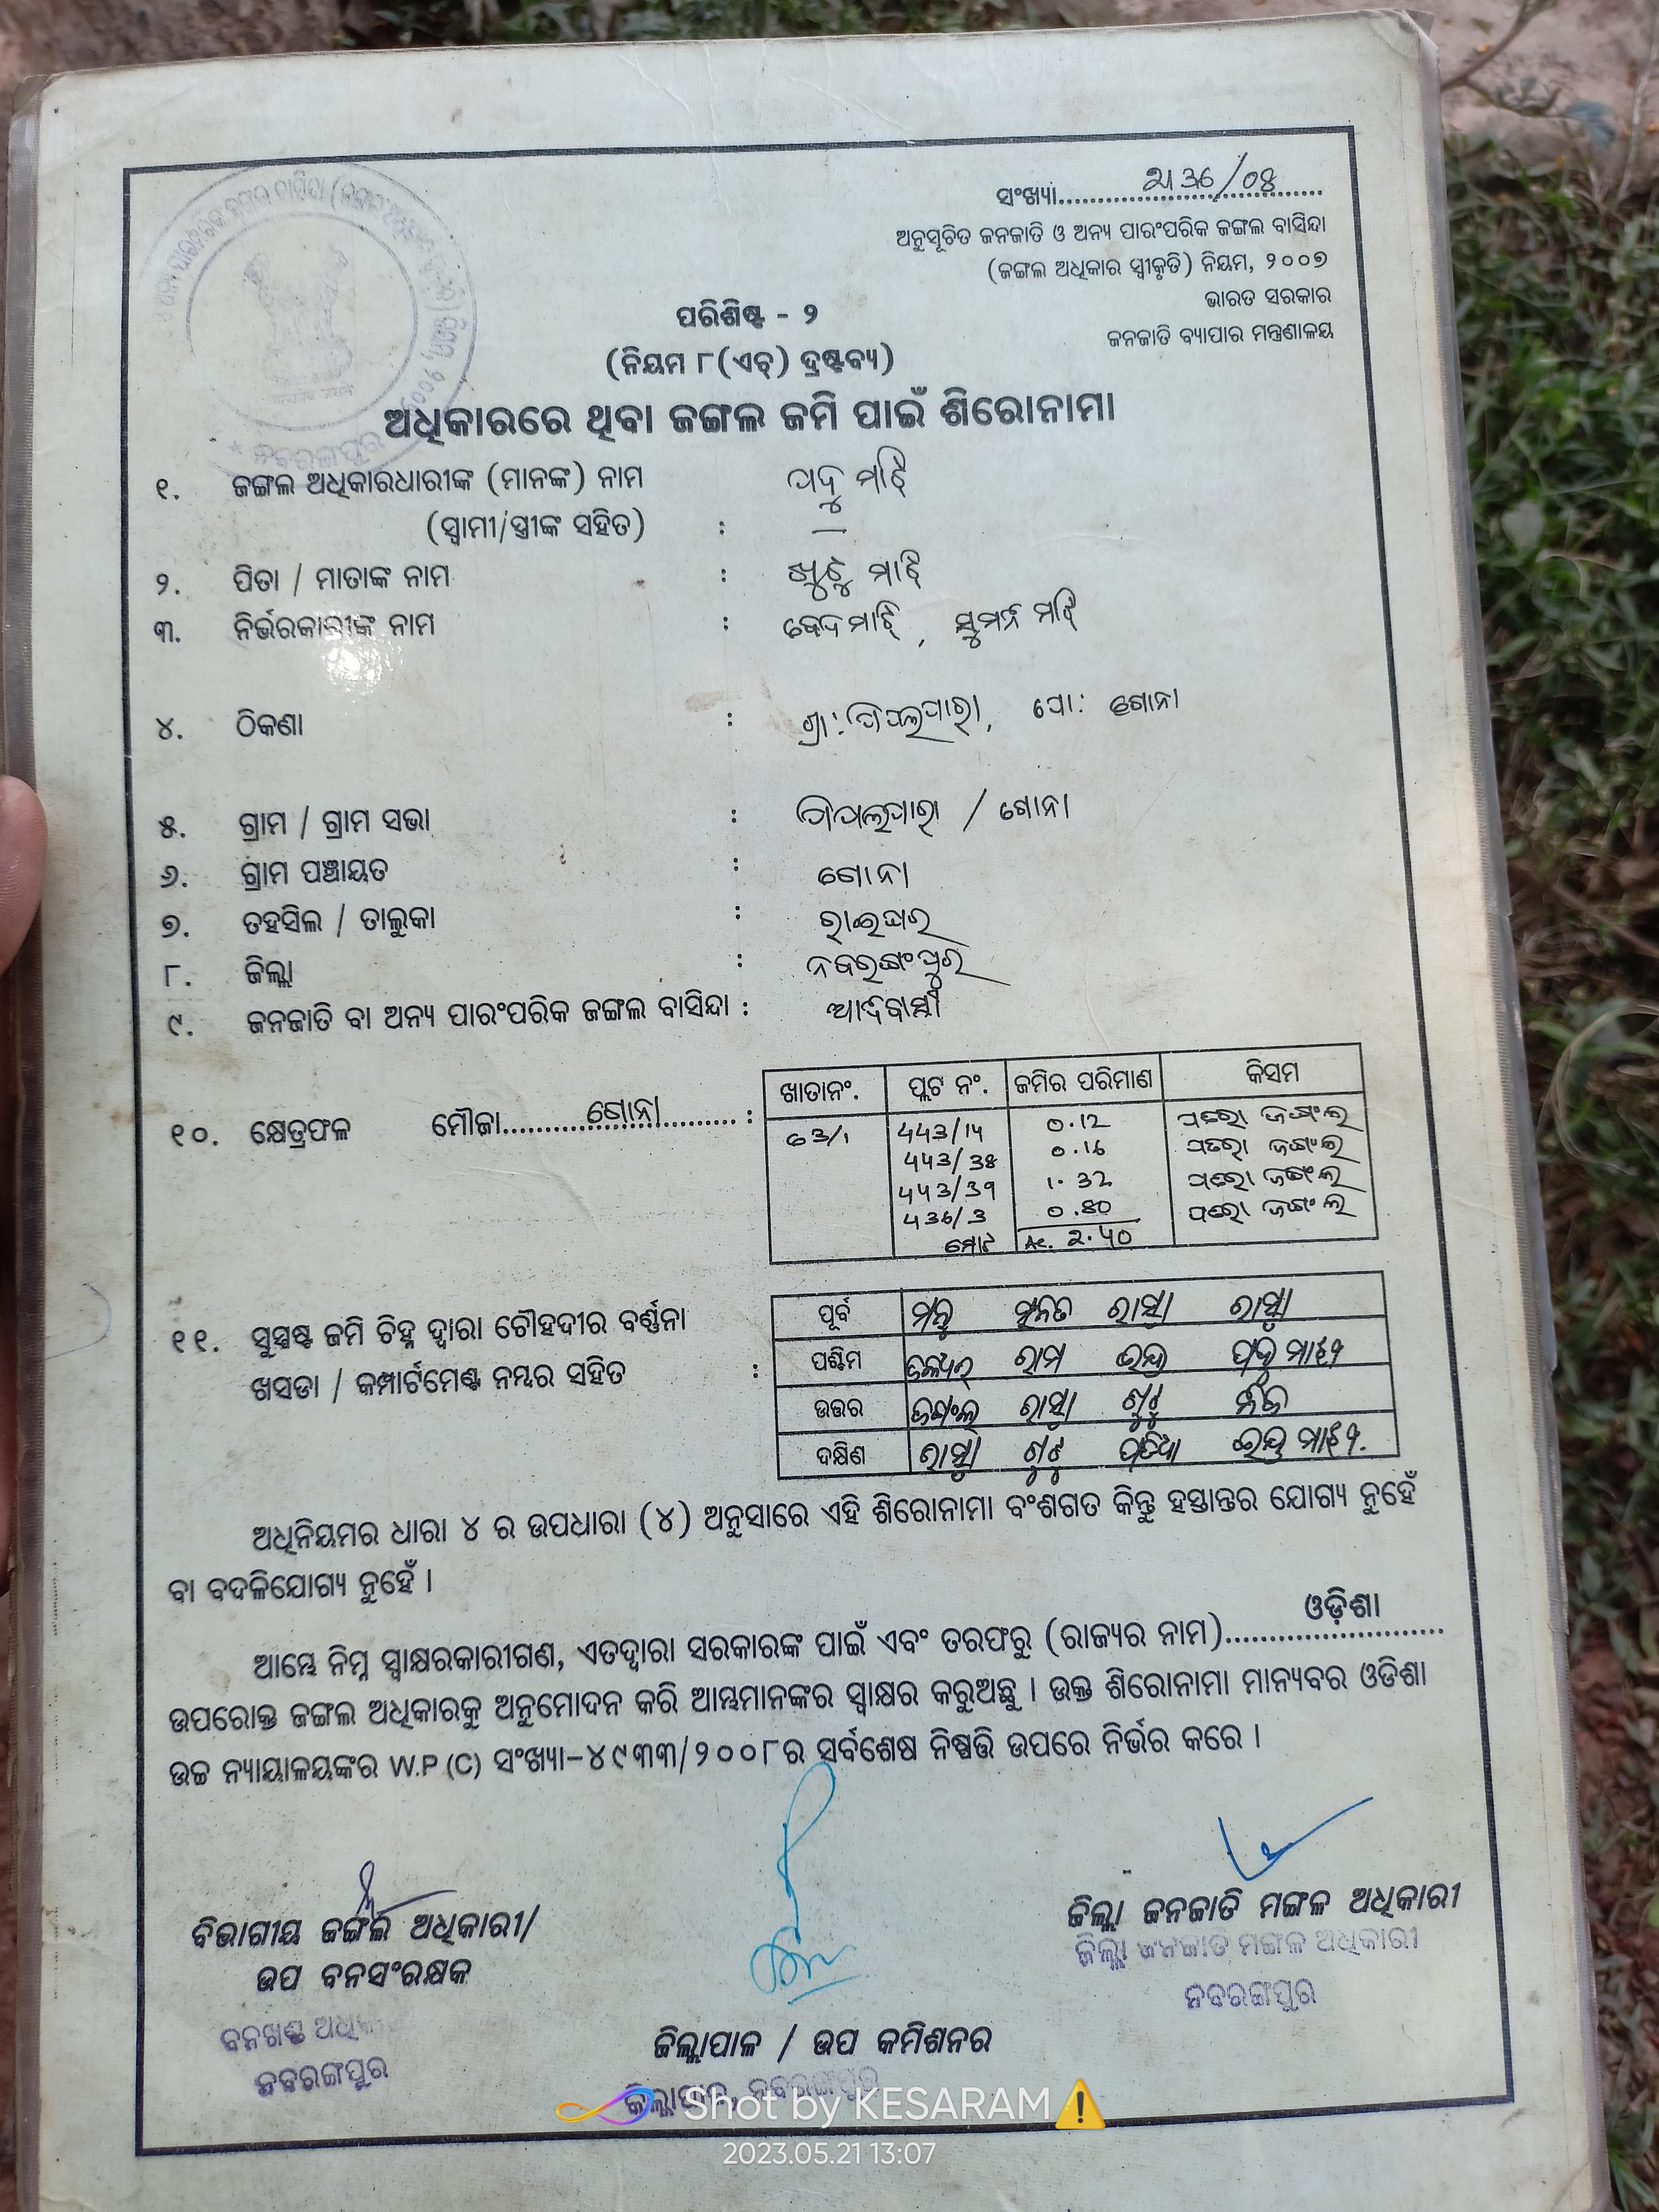 ସଂଖ୍ୟା..............................
ଅନୁସୂଚିତ ଜନଜାତି ଓ ଅନ୍ୟ ପାରଂପରିକ ଜଙ୍ଗଲ ବାସିନ୍ଦା
(ଜଙ୍ଗଲ ଅଧିକାର ସ୍ୱୀକୃତି) ନିୟମ, ୨୦୦୭
ଭାରତ ସରକାର
ଜନଜାତି ବ୍ୟାପାର ମନ୍ତ୍ରଣାଳୟ
ପରିଶିଷ୍ଟ - ୨
(ନିୟମ ୮(ଏଚ୍) ଦ୍ରଷ୍ଟବ୍ୟ)
ଅଧିକାରରେ ଥିବା ଜଙ୍ଗଲ ଜମି ପାଇଁ ଶିରୋନାମା
୧. ଜଙ୍ଗଲ ଅଧିକାରଧାରୀଙ୍କ (ମାନଙ୍କ) ନାମ ପଦୁ ମାଝି
(ସ୍ୱାମୀ/ସ୍ତ୍ରୀଙ୍କ ସହିତ) : —
୨. ପିତା / ମାତାଙ୍କ ନାମ : ଖୁଟୁ ମାଝି
୩. ନିର୍ଭରକାରୀଙ୍କ ନାମ : ମାଝି,
୪. ଠିକଣା : ଗ୍ରା: ପିପଲପାରା, ପୋ: ଗୋନା
୫. ଗ୍ରାମ / ଗ୍ରାମ ସଭା : ପିପଲପାରା / ଗୋନା
୬. ଗ୍ରାମ ପଞ୍ଚାୟତ : ଗୋନା
୭. ତହସିଲ / ତାଲୁକା : ରାଇଘର
୮. ଜିଲ୍ଲା : ନବରଙ୍ଗପୁର
୯. ଜନଜାତି ବା ଅନ୍ୟ ପାରଂପରିକ ଜଙ୍ଗଲ ବାସିନ୍ଦା : ଆଦିବାସୀ
୧୦. କ୍ଷେତ୍ରଫଳ ମୌଜା......ଗୋନା...... :
ଖାତାନଂ. ପ୍ଲଟ ନଂ. ଜମିର ପରିମାଣ କିସମ
63/1 443/14 0.12 ପତରା ଜଙ୍ଗଲ
0.16 ପତରା ଜଙ୍ଗଲ
1.32 ପତରା ଜଙ୍ଗଲ
436/3 0.80 ପତରା ଜଙ୍ଗଲ
ମୋଟ Ac. 2.40
୧୧. ସୁସ୍ପଷ୍ଟ ଜମି ଚିହ୍ନ ଦ୍ୱାରା ଚୌହଦୀର ବର୍ଣ୍ଣନା
ଖସଡା / କମ୍ପାର୍ଟମେଣ୍ଟ ନମ୍ବର ସହିତ :
ପୂର୍ବ ରାସ୍ତା ରାସ୍ତା
ପଶ୍ଚିମ ରାମ ମାଝି
ଉତ୍ତର ଜଙ୍ଗଲ ରାସ୍ତା ଖୁଟୁ ନିଜ
ଦକ୍ଷିଣ ରାସ୍ତା ଖୁଟୁ ପଡିଆ ମାଝି
ଅଧିନିୟମର ଧାରା ୪ ର ଉପଧାରା (୪) ଅନୁସାରେ ଏହି ଶିରୋନାମା ବଂଶଗତ କିନ୍ତୁ ହସ୍ତାନ୍ତର ଯୋଗ୍ୟ ନୁହେଁ
ବା ବଦଳିଯୋଗ୍ୟ ନୁହେଁ ।
ଆମ୍ଭେ ନିମ୍ନ ସ୍ୱାକ୍ଷରକାରୀଗଣ, ଏତଦ୍ୱାରା ସରକାରଙ୍କ ପାଇଁ ଏବଂ ତରଫରୁ (ରାଜ୍ୟର ନାମ).......ଓଡ଼ିଶା.......
ଉପରୋକ୍ତ ଜଙ୍ଗଲ ଅଧିକାରକୁ ଅନୁମୋଦନ କରି ଆମ୍ଭମାନଙ୍କର ସ୍ୱାକ୍ଷର କରୁଅଛୁ । ଉକ୍ତ ଶିରୋନାମା ମାନ୍ୟବର ଓଡିଶା
ଉଚ୍ଚ ନ୍ୟାୟାଳୟଙ୍କର W.P (C) ସଂଖ୍ୟା-୪୯୩୩/୨୦୦୮ର ସର୍ବଶେଷ ନିଷ୍ପତ୍ତି ଉପରେ ନିର୍ଭର କରେ ।
ବିଭାଗୀୟ ଜଙ୍ଗଲ ଅଧିକାରୀ/
ଉପ ବନସଂରକ୍ଷକ
ବନଖଣ୍ଡ ଅଧିକା
ନବରଙ୍ଗପୁର
ଜିଲ୍ଲାପାଳ / ଉପ କମିଶନର
ଜିଲ୍ଲାପାଳ, ନବରଙ୍ଗପୁର
ଜିଲ୍ଲା ଜନଜାତି ମଙ୍ଗଳ ଅଧିକାରୀ
ଜିଲ୍ଲା ଜନଜାତି ମଙ୍ଗଳ ଅଧିକାରୀ
ନବରଙ୍ଗପୁର
Shot by KESARAM⚠️
2023.05.21 13:07